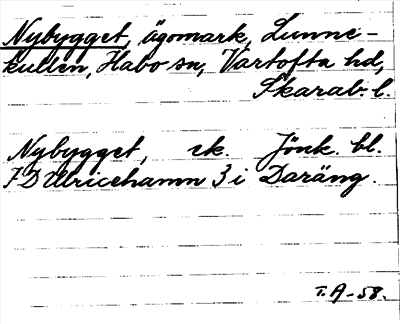 Nybygget, ägomark, Lunne-
kullen, Habo sn, Vartofta hd,
Skarab. l.
Nybygget, ek. Jönk. bl.
7D Ulricehamn 3 i Daräng.
T.A-58.